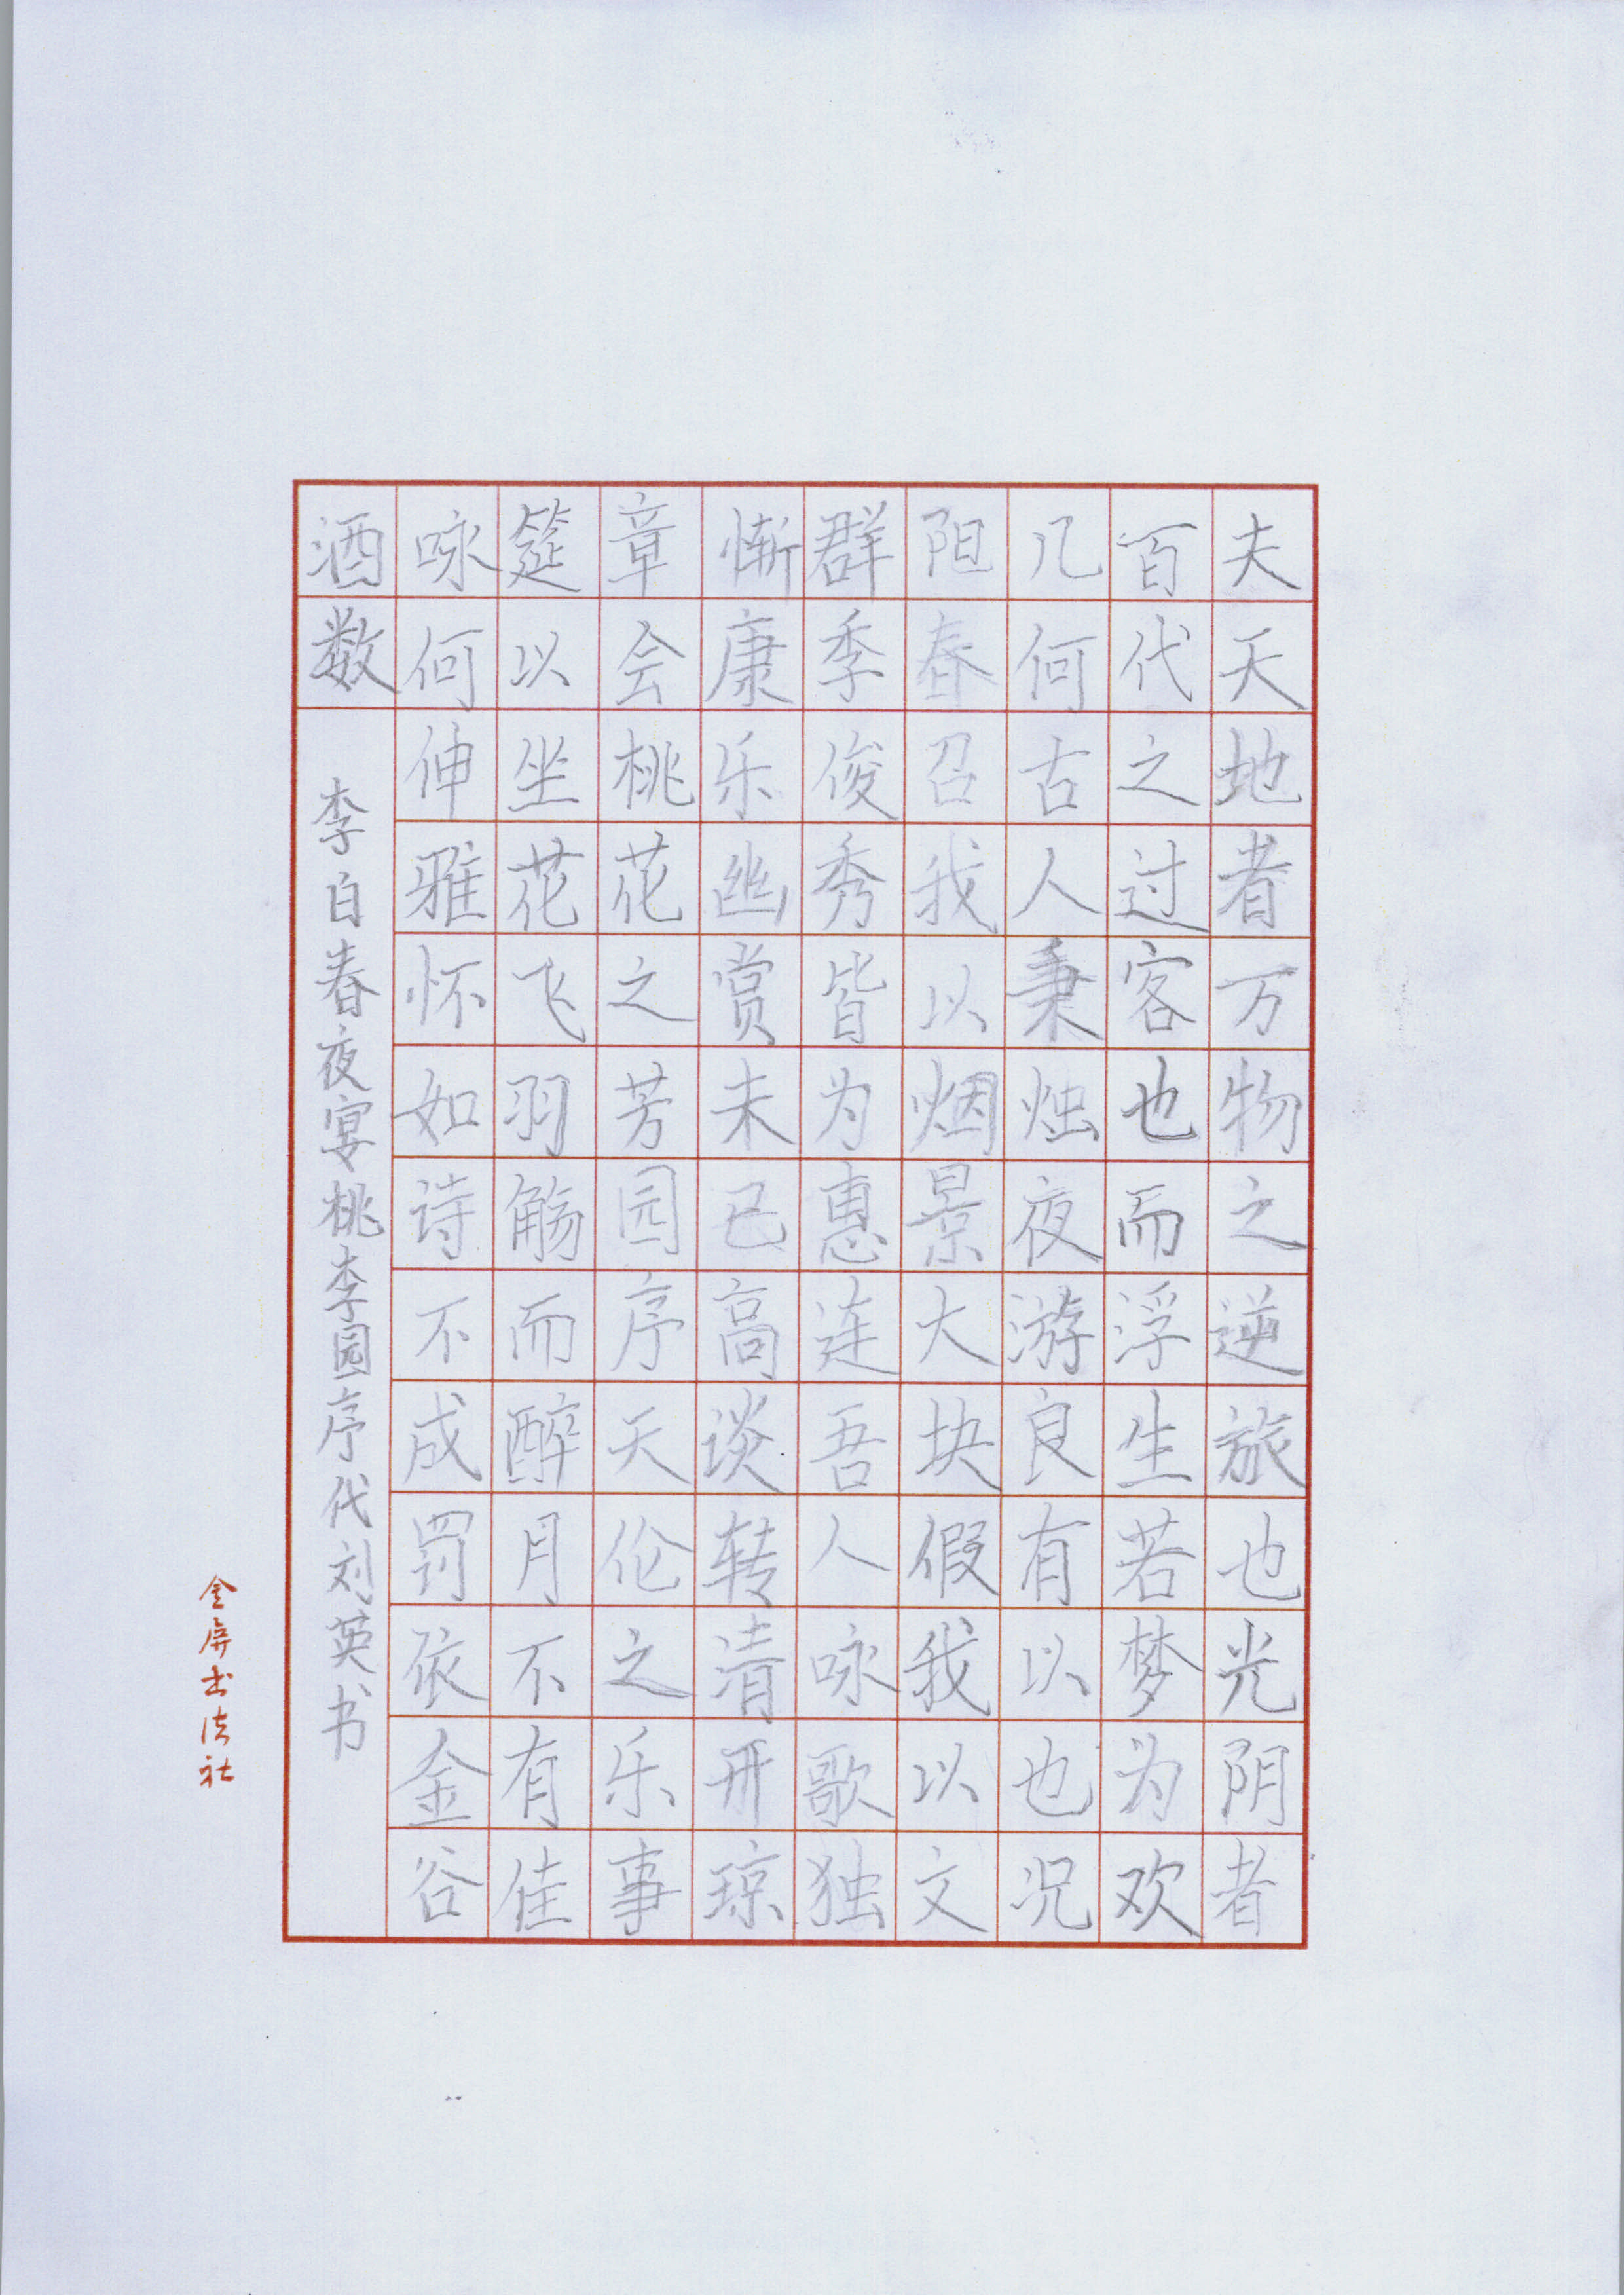 夫天地者万物之逆旅也光阴者
百代之过客也而浮生若梦为欢
几何古人秉烛夜游良有以也况
阳春召我以烟景大块假我以文
章会桃花之芳园序天伦之乐事
群季俊秀皆为惠连吾人咏歌独
惭康乐幽赏未已高谈转清开琼
筵以坐花飞羽觞而醉月不有佳
咏何伸雅怀如诗不成罚依金谷
酒数
李白春夜宴桃李园序代刘英书
金屏书法社